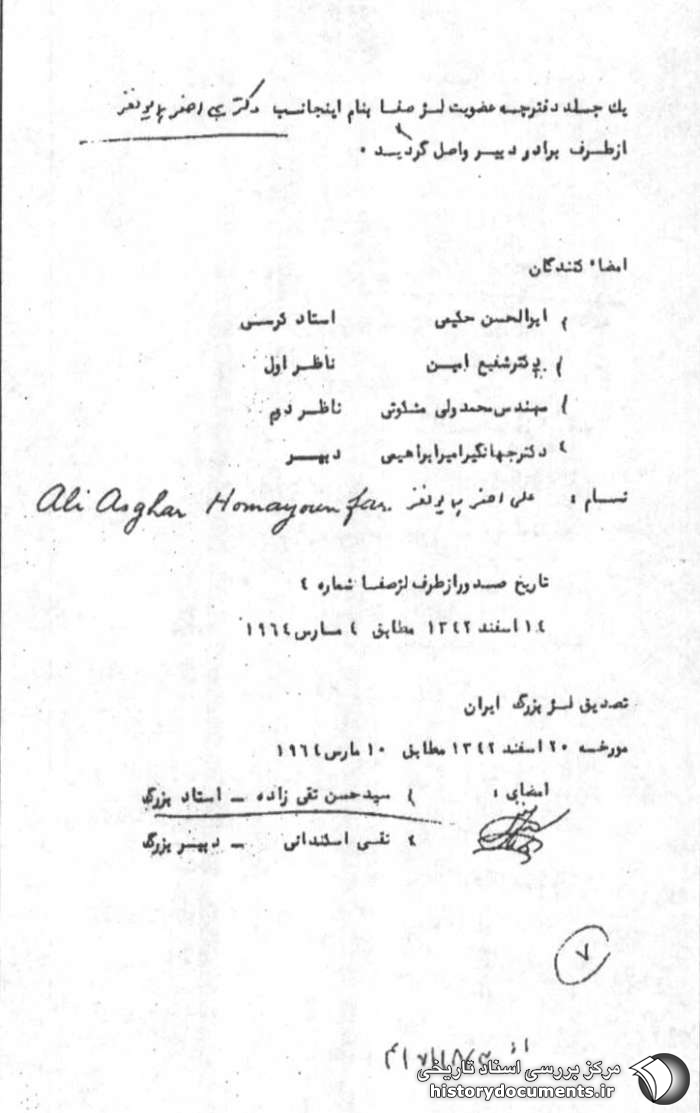 یك جلد دفترچه عضویت لژ صفا بنام اینجانب دکتر علی اصغر همایونفر
ازطرف برادر دبیر واصل گردید .
امضاء کنندگان
ابوالحسن حکیمی استاد کرسی
دکترشفیع امین ناظر اول
مهندس محمدولی ناظر دوم
دکترجهانگیرامیرابراهیمی دبیر
نام : علی اصغر همایونفر Ali Asghar Homayounfar.
تاریخ صدورازطرف لژصفا شماره ٤
١٤ اسفند ١٣٤٢ مطابق ٤ مارس ١٩٦٤
تصدیق لژ بزرگ ایران
مورخه ٢٠ اسفند ١٣٤٢ مطابق ١٠ مارس ١٩٦٤
امضای :
سیدحسن تقی زاده – استاد بزرگ
تقی اسکندانی – دبیر بزرگ
٧
مرکز بررسی اسناد تاریخی
historydocuments.ir